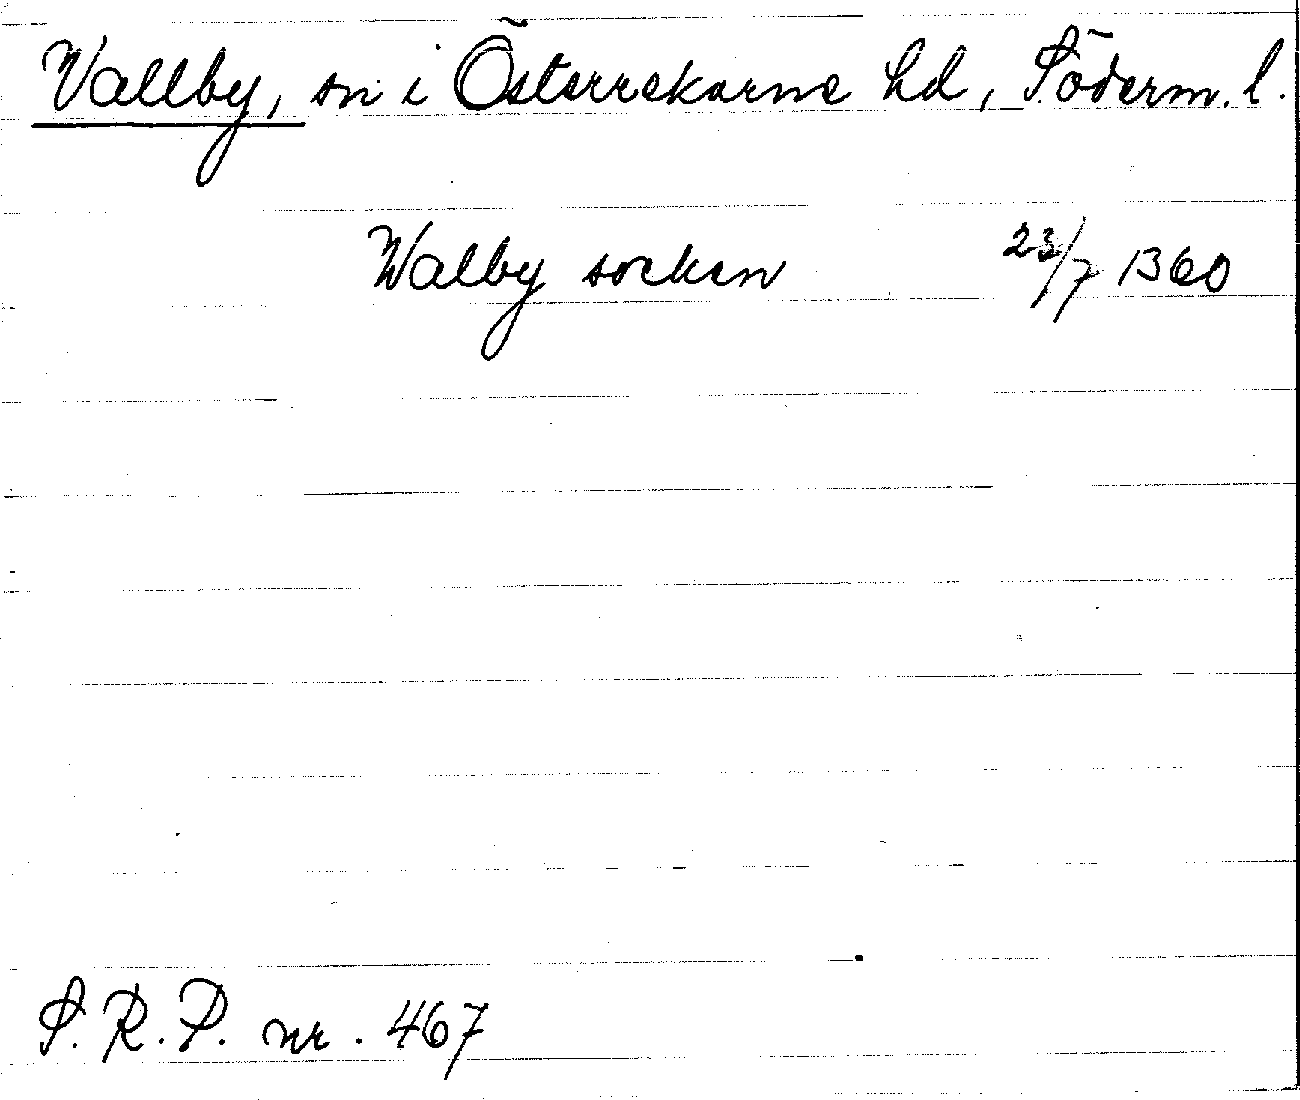 Vallby, sn i Österrekarne hd, Söderm. l.
Walby socken 23/7 1360
S. R. P. nr. 467